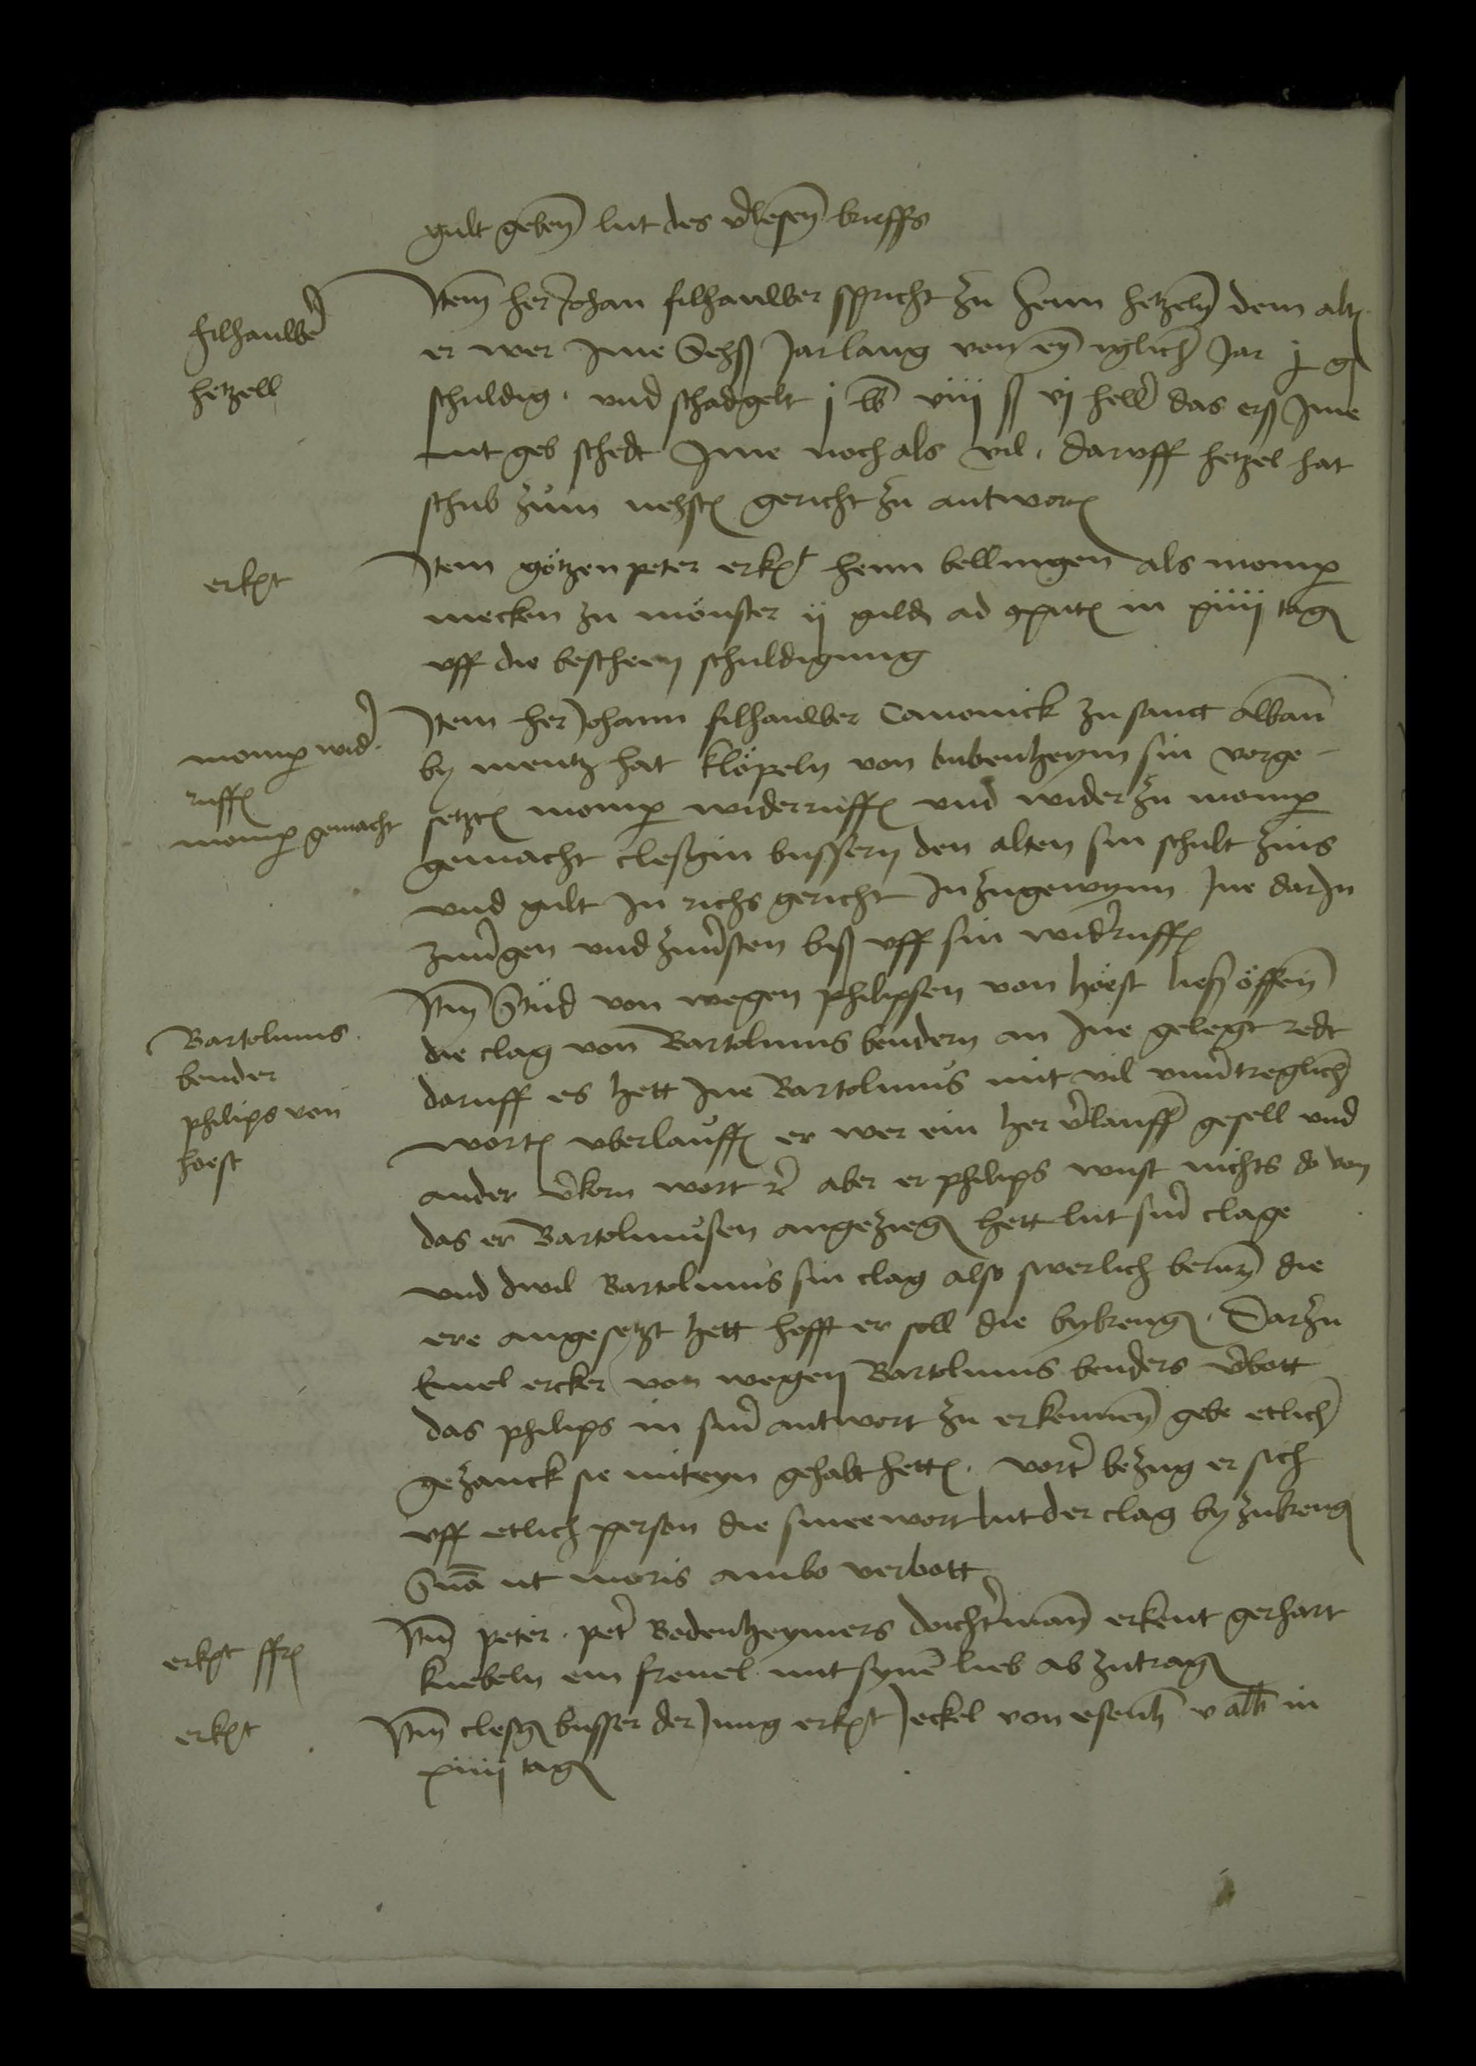 gult geben lut des v'lesen brieffs
filhauwer
hetzell
Item her Johan filhauwer spricht zu henn hetzeln dem alt
er wer Ime Sehß Jar lang von ey yglich Jar j g
schuldig. und schadgelt j lb viij ß vj hell' das erß Ime
nit geb schedt Ime noch als vil. daruff hetzel hat
schub zum nehst gericht zu antwort
erkt
Item götzen peter erkt henn bellingen als momp
mecken zu mönster ij guld ad in xiiij tag
uff die bescheen schuldigung
momp wid'
ruff
momp gemacht
Item her Johann filhauwer Canonick zu sanct alban
by mentz hat klöpeln von bubenheym sin vorge-
setzt momp widerruff und wider zu momp
gemacht cleßgin bussern den alten sin schult zins
und gult In richs gericht In zugewynn Ine dar In
und biß uff sin wid'ruff
Bartolmus
bender
philips von
hoest
Itm Stud von wegen philipsen von höest ließ öffen
die clag von Bartolmus bendern an Ine gelegt redt
daruff es hett Ine Bartolmus mit vil unu'treglich
wort uberlauff er wer ein her v'lauff gesell und
ander wort rc aber er philips wust nichts do von
das er Bartolmusen angezieg hett lut sin' clage
und dwil Bartolmus sin clag also swerlich die
ere angesetzt hett hofft er soll die bybreng. Darzu
Emel ercker von wegen Bartolmus benders v'bott
das philips in sin' antwort zu erkennen gebe etlich
gezanck sie miteyn gehabt hett. vort' bezug er sich
uff etlich person die smeewort lut der clag by zubreng
S'nā ut moris ambo verbott
erkt ffr
Itm peter. pet' Bedenheymers dochterman erkent gerhart
knebeln ein frevel mit synē lieb ab zutrag
erkt
Itm cleßg busser der Jung erkt Jeckel von v alb in
xiiij tag